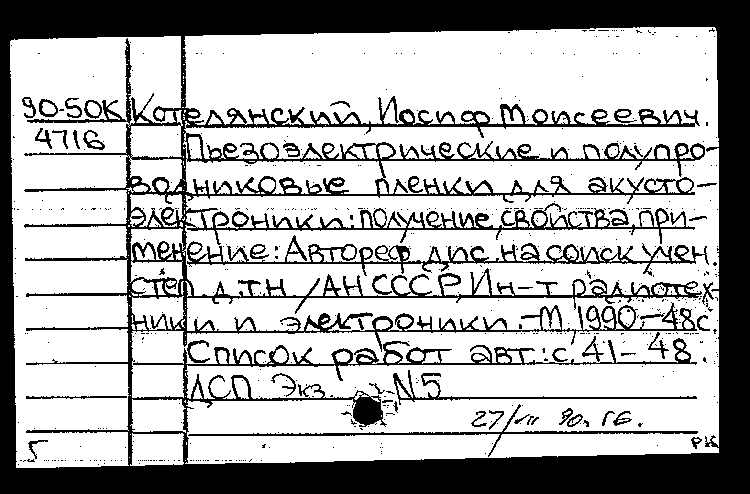 90-50К Котелянский, Иосиф Моисеевич.
4716 Пьезоэлектрические и полупро-
водниковые пленки для акусто-
электроники: получение, свойства, при-
менение: Автореф. дис. на соиск учен.
степ. д.т.н. /АН СССР, Ин-т радиотех-
ники и электроники.-М, 1990.-48с.
Список работ авт.: с. 41-48.
ДСП Экз. N5
27/VII 90.
РК